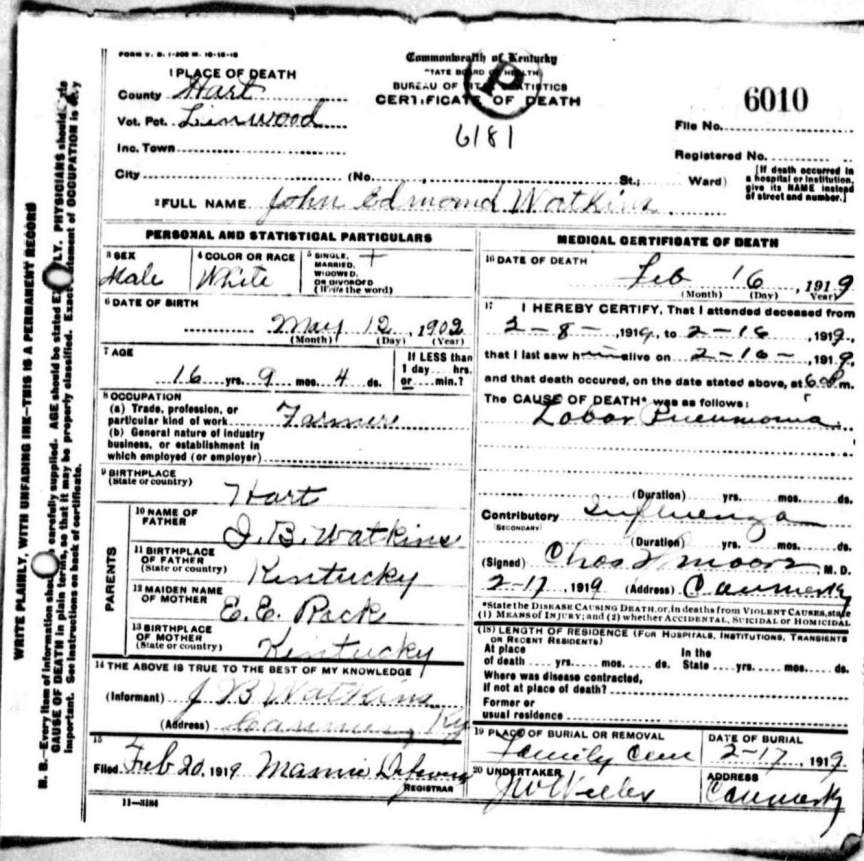 FORM V. S. 1-200 M. 10-10-18
Commonwealth of Kentucky
STATE BOARD OF HEALTH
BUREAU OF VITAL STATISTICS
CERTIFICATE OF DEATH
P
6181
6010
1 PLACE OF DEATH
County Hart
Vot. Pct. Linwood
Inc. Town
City (No. St.; Ward)
File No.
Registered No.
[If death occurred in a hospital or institution, give its NAME instead of street and number.]
2 FULL NAME John Edmond Watkins
PERSONAL AND STATISTICAL PARTICULARS
3 SEX
Male
4 COLOR OR RACE
White
5 SINGLE,
MARRIED,
WIDOWED,
OR DIVORCED
(Write the word)
6 DATE OF BIRTH
May 12, 1902
(Month) (Day) (Year)
7 AGE
16 yrs. 9 mos. 4 ds.
If LESS than
1 day hrs.
or min.?
8 OCCUPATION
(a) Trade, profession, or
particular kind of work Farmer
(b) General nature of industry
business, or establishment in
which employed (or employer)
9 BIRTHPLACE
(State or country)
Hart
PARENTS
10 NAME OF
FATHER
J. B. Watkins
11 BIRTHPLACE
OF FATHER
(State or country)
Kentucky
12 MAIDEN NAME
OF MOTHER
E. E. Rock
13 BIRTHPLACE
OF MOTHER
(State or country)
Kentucky
14 THE ABOVE IS TRUE TO THE BEST OF MY KNOWLEDGE
(Informant) J B Watkins
(Address) Canmer, Ky
15
Filed Feb 20, 1919 Mamie
REGISTRAR
11—3184
MEDICAL CERTIFICATE OF DEATH
16 DATE OF DEATH
Feb 16, 1919
(Month) (Day) Year)
17 I HEREBY CERTIFY, That I attended deceased from
2-8-, 1919, to 2-16, 1919,
that I last saw him alive on 2-16-, 1919,
and that death occured, on the date stated above, at 6 P.m.
The CAUSE OF DEATH* was as follows:
Lobar Pneumonia
(Duration) yrs. mos. ds.
Contributory Influenza
SECONDARY
(Duration) yrs. mos. ds.
(Signed) Chas Moore, M. D.
2-17, 1919 (Address) Canmer Ky
*State the DISEASE CAUSING DEATH, or, in deaths from VIOLENT CAUSES, state
(1) MEANS of INJURY; and (2) whether ACCIDENTAL, SUICIDAL or HOMICIDAL
(18) LENGTH OF RESIDENCE (FOR HOSPITALS, INSTITUTIONS, TRANSIENTS
OR RECENT RESIDENTS)
At place In the
of death yrs. mos. ds. State yrs. mos. ds.
Where was disease contracted,
if not at place of death?
Former or
usual residence
19 PLACE OF BURIAL OR REMOVAL
Family Cem
DATE OF BURIAL
2-17, 1919
20 UNDERTAKER
J W
ADDRESS
Canmer Ky
WRITE PLAINLY, WITH UNFADING INK—THIS IS A PERMANENT RECORD
N. B.—Every item of information should carefully supplied. AGE should be stated EXACTLY. PHYSICIANS should state
CAUSE OF DEATH in plain terms, so that it may be properly classified. Exact statement of OCCUPATION is very
important. See instructions on back of certificate.